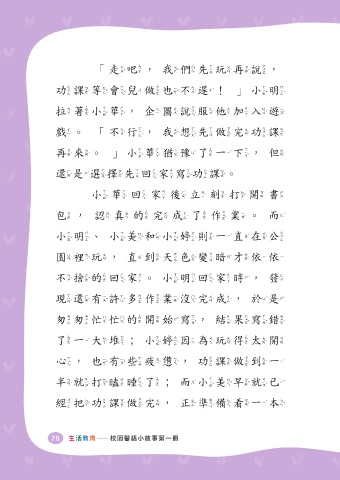 「走吧，我們先玩再說，
功課等會兒做也不遲！」小明
拉著小華，企圖說服他加入遊
戲。「不行，我想先做完功課
再來。」小華猶豫了一下，但
還是選擇先回家寫功課。
小華回家後立刻打開書
包，認真的完成了作業。而
小明、小美和小婷則一直在公
園裡玩，直到天色變暗才依依
不捨的回家。小明回家時，發
現還有許多作業沒完成，於是
匆匆忙忙的開始寫，結果寫錯
了一大堆；小婷因為玩得太開
心，也有些疲憊，功課做到一
半就打瞌睡了；而小美早就已
經把功課做完，正準備看一本
26 生活教育——校園醫語小故事第一冊